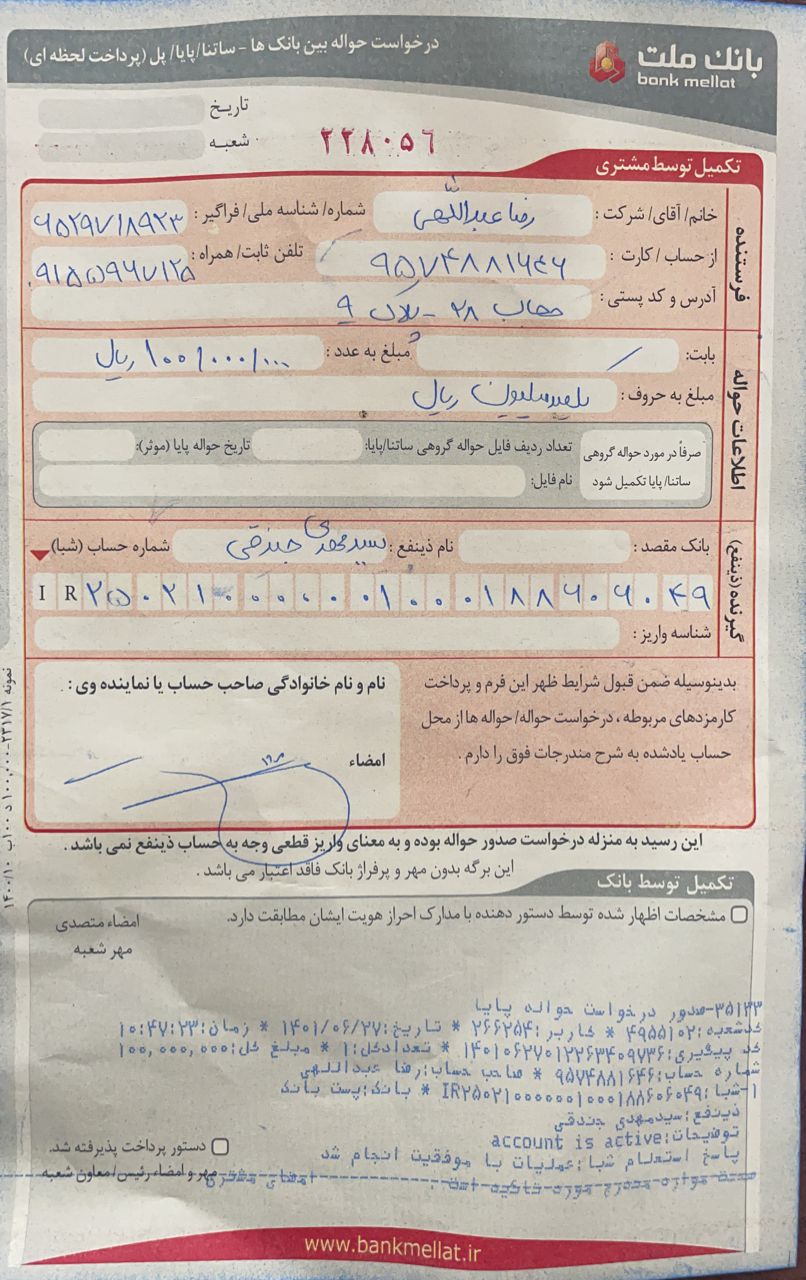 بانک ملت
bank mellat
درخواست حواله بین بانک ها - ساتنا/پایا/ پل (پرداخت لحظه ای)
تاریخ
شعبه
۲۲۸۰۵۶
تکمیل توسط مشتری
فرستنده
خانم/ آقای/ شرکت : رضا عبداللهی شماره/ شناسه ملی/ فراگیر :
از حساب / کارت : ۹۵۷۴۸۸۱۶۴۶ تلفن ثابت/ همراه : ۰۹۱۵۵۹۶۷۱۲۵
آدرس و کد پستی : ۲۸ - پلاک ۹
اطلاعات حواله
بابت: مبلغ به عدد : ۱۰۰/۰۰۰/۰۰۰ ریال
مبلغ به حروف : یکصد میلیون ریال
صرفاً در مورد حواله گروهی ساتنا/ پایا تکمیل شود
تعداد ردیف فایل حواله گروهی ساتنا/پایا: تاریخ حواله پایا (موثر):
نام فایل:
گیرنده (ذینفع)
بانک مقصد : نام ذینفع : سید مهدی جندقی شماره حساب (شبا)
IR۲۵۰۲۱۰۰۰۰۰۰۱۰۰۰۱۸۸۶۰۶۰۴۹
شناسه واریز :
بدینوسیله ضمن قبول شرایط ظهر این فرم و پرداخت
کارمزدهای مربوطه ، درخواست حواله/ حواله ها از محل
حساب یادشده به شرح مندرجات فوق را دارم .
نام و نام خانوادگی صاحب حساب یا نماینده وی :
امضاء
این رسید به منزله درخواست صدور حواله بوده و به معنای واریز قطعی وجه به حساب ذینفع نمی باشد .
این برگه بدون مهر و پرفراژ بانک فاقد اعتبار می باشد .
تکمیل توسط بانک
مشخصات اظهار شده توسط دستور دهنده با مدارک احراز هویت ایشان مطابقت دارد.
امضاء متصدی
مهر شعبه
۳۵۱۳۳-صدور درخواست حواله پایا
کدشعبه:۴۹۵۵۱۰۲ * کاربر:۲۶۶۲۵۴ * تاریخ:۱۴۰۱/۰۶/۲۷ * زمان:۱۰:۴۷:۲۳
کد پیگیری:۱۴۰۱۰۶۲۷۰۱۲۲۶۳۴۰۹۷۳۶ * تعدادکل:۱ * مبلغ کل:۱۰۰,۰۰۰,۰۰۰
شماره حساب:۹۵۷۴۸۸۱۶۴۶ * صاحب حساب:رضا عبداللهی
۱-شبا:IR۲۵۰۲۱۰۰۰۰۰۰۱۰۰۰۱۸۸۶۰۶۰۴۹ * بانک:پست بانک
ذینفع:سیدمهدی جندقی
توضیحات:account is active
پاسخ استعلام شبا:عملیات با موفقیت انجام شد
صحت موارد مندرج مورد تائید است : امضای مشتری
دستور پرداخت پذیرفته شد.
مهر و امضاء رئیس/ معاون شعبه
www.bankmellat.ir